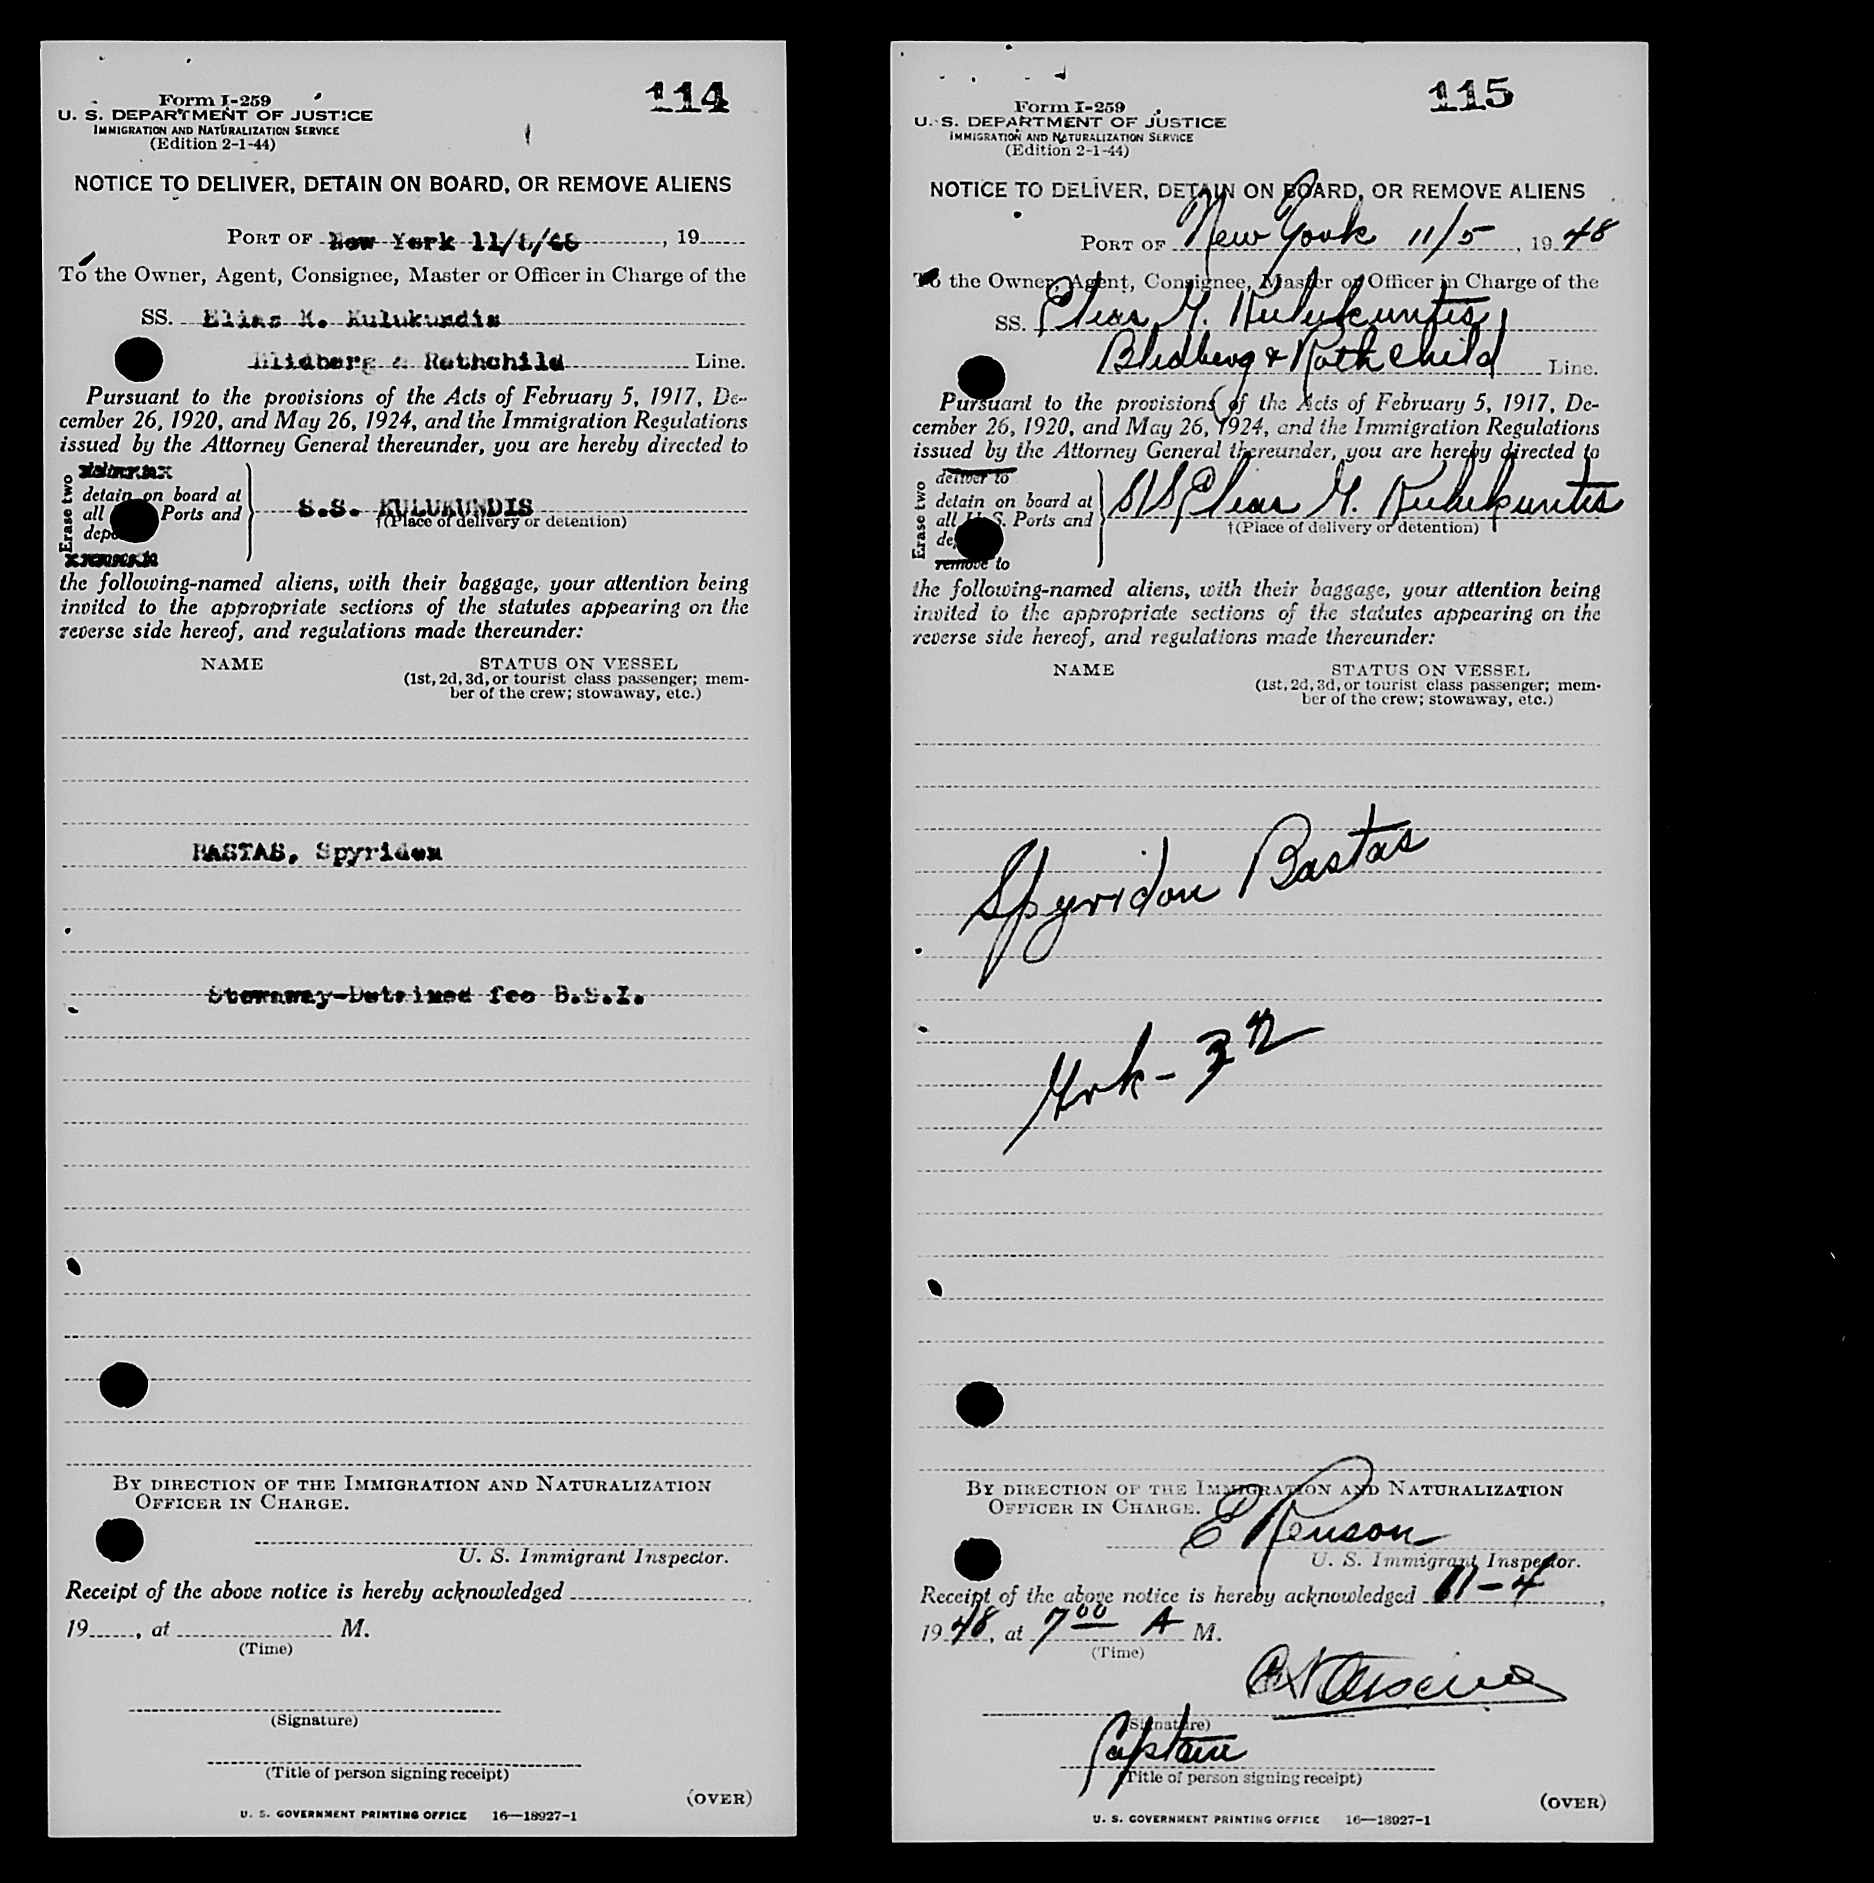 114
Form I-259
U. S. DEPARTMENT OF JUSTICE
IMMIGRATION AND NATURALIZATION SERVICE
(Edition 2-1-44)
NOTICE TO DELIVER, DETAIN ON BOARD, OR REMOVE ALIENS
PORT OF New York 11/ /48, 19
To the Owner, Agent, Consignee, Master or Officer in Charge of the
SS. Elias Kulukundis
Blidberg & Rothchild Line.
Pursuant to the provisions of the Acts of February 5, 1917, De-
cember 26, 1920, and May 26, 1924, and the Immigration Regulations
issued by the Attorney General thereunder, you are hereby directed to
Erase two
detain on board at
all Ports and
S.S. KULUKUNDIS
†(Place of delivery or detention)
the following-named aliens, with their baggage, your attention being
invited to the appropriate sections of the statutes appearing on the
reverse side hereof, and regulations made thereunder:
NAME STATUS ON VESSEL
(1st, 2d, 3d, or tourist class passenger; mem-
ber of the crew; stowaway, etc.)
BASTAS, Spyridon
Stowaway-Detained fco B.S.I.
BY DIRECTION OF THE IMMIGRATION AND NATURALIZATION
OFFICER IN CHARGE.
U. S. Immigrant Inspector.
Receipt of the above notice is hereby acknowledged
19, at M.
(Time)
(Signature)
(Title of person signing receipt)
(OVER)
U. S. GOVERNMENT PRINTING OFFICE 16—18927-1
115
Form I-259
U. S. DEPARTMENT OF JUSTICE
IMMIGRATION AND NATURALIZATION SERVICE
(Edition 2-1-44)
NOTICE TO DELIVER, DETAIN ON BOARD, OR REMOVE ALIENS
PORT OF New York 11/5, 1948
To the Owner, Agent, Consignee, Master or Officer in Charge of the
SS. Elias G. Kulukuntis
Blidberg & Rothchild Line.
Pursuant to the provisions of the Acts of February 5, 1917, De-
cember 26, 1920, and May 26, 1924, and the Immigration Regulations
issued by the Attorney General thereunder, you are hereby directed to
Erase two
deliver to
detain on board at
all U. S. Ports and
remove to
S/S Elias G. Kulukuntis
†(Place of delivery or detention)
the following-named aliens, with their baggage, your attention being
invited to the appropriate sections of the statutes appearing on the
reverse side hereof, and regulations made thereunder:
NAME STATUS ON VESSEL
(1st, 2d, 3d, or tourist class passenger; mem-
ber of the crew; stowaway, etc.)
Spyridon Bastas
Grk-
BY DIRECTION OF THE IMMIGRATION AND NATURALIZATION
OFFICER IN CHARGE.
E Renson
U. S. Immigrant Inspector.
Receipt of the above notice is hereby acknowledged 11-4,
1948, at 7 00 A M.
(Time)
(Signature)
Captain
(Title of person signing receipt)
(OVER)
U. S. GOVERNMENT PRINTING OFFICE 16—18927-1